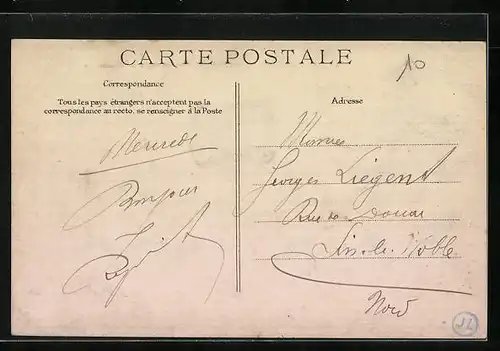 CARTE POSTALE
10
Correspondance
Tous les pays étrangers n'acceptent pas la
correspondance au recto, se renseigner à la Poste
Adresse
Bonjour
Georges Liégent
Rue de Douai
Sin-le-Noble
Nord
JL